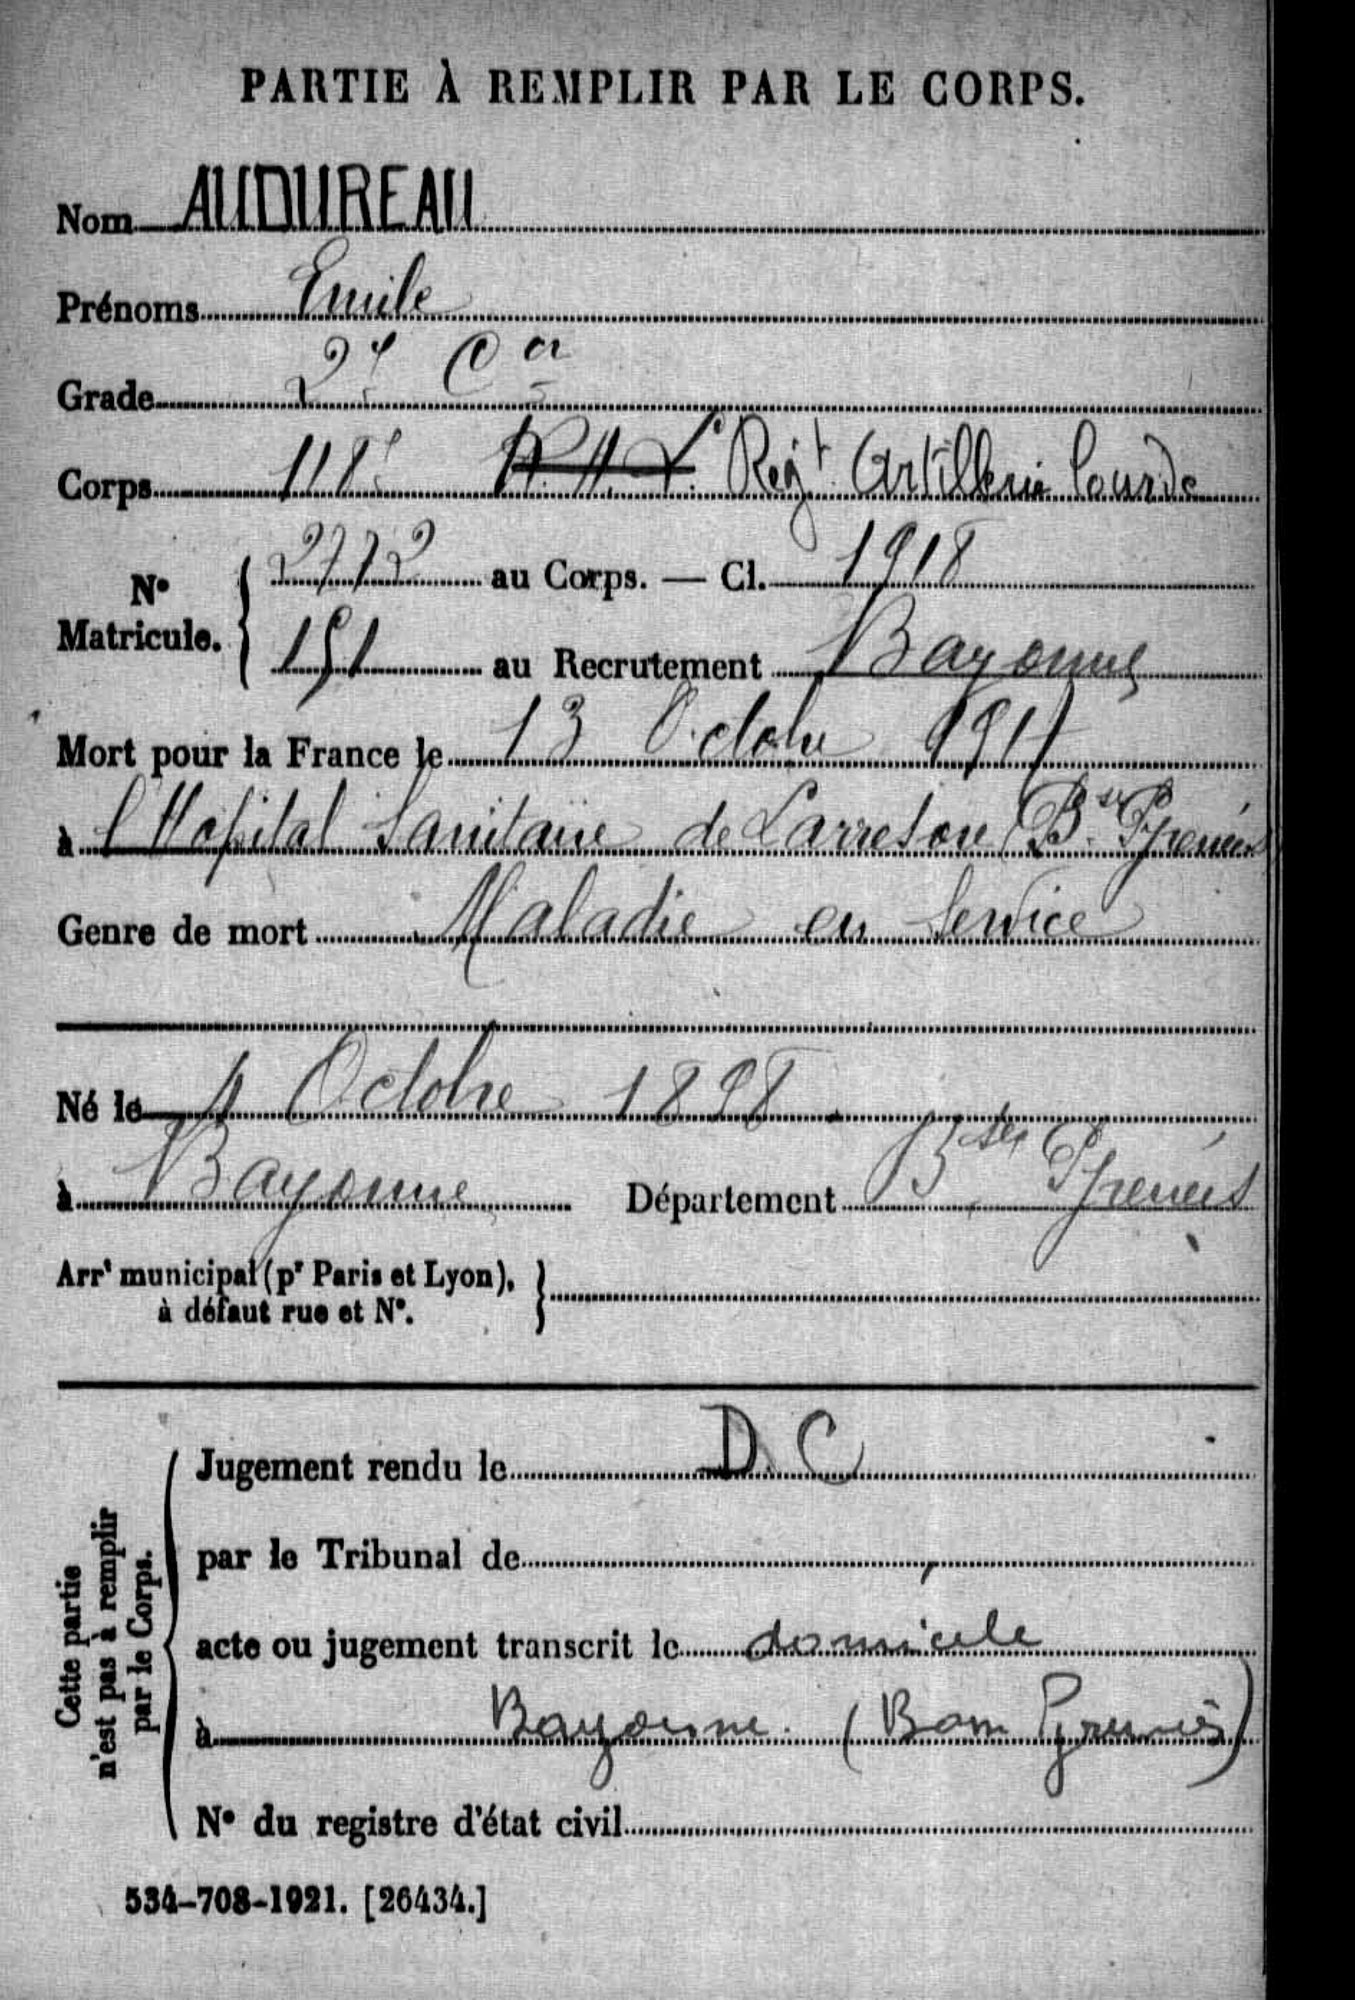 PARTIE À REMPLIR PAR LE CORPS.
Nom AUDUREAU
Prénoms Emile
Grade 2e Cr
Corps 118e R.A.L. Regt Artillerie Lourde
No Matricule. 2772 au Corps. — Cl. 1918
151 au Recrutement Bayonne
Mort pour la France le 13 Octobre 1917
à l'Hopital Sanitaire de Larressore (Bses Pyrenées
Genre de mort Maladie en Service
Né le 4 Octobre 1898.
à Bayonne Département Bses Pyrenées
Arrt municipal (pr Paris et Lyon),
à défaut rue et No.
Cette partie
n'est pas à remplir
par le Corps.
Jugement rendu le D. C
par le Tribunal de
acte ou jugement transcrit le domicile
à Bayonne. (Bass Pyrénées)
No du registre d'état civil
534-708-1921. [26434.]